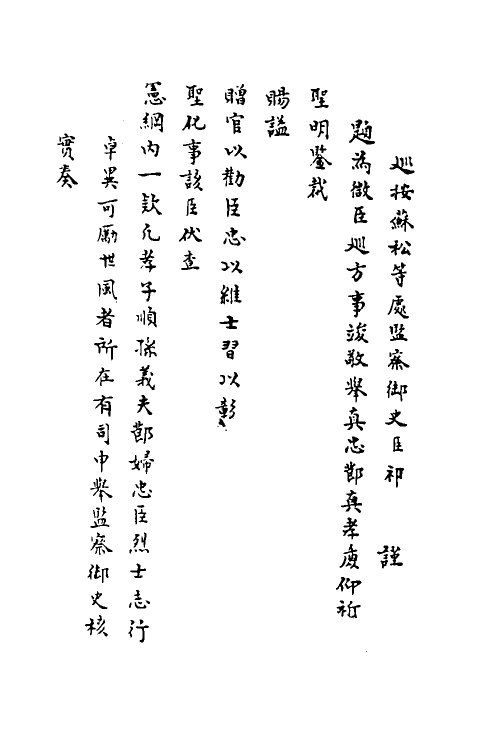 巡按蘇松等處監察御史臣祁　謹
題為微臣巡方事竣敬舉真忠節真孝廉仰祈
聖明鑒裁
賜謚
贈官以勸臣忠以維士習以彰
聖化事該臣伏查
憲綱內一款凡孝子順孫義夫節婦忠臣烈士志行
卓異可勵世風者所在有司申舉監察御史核
實奏